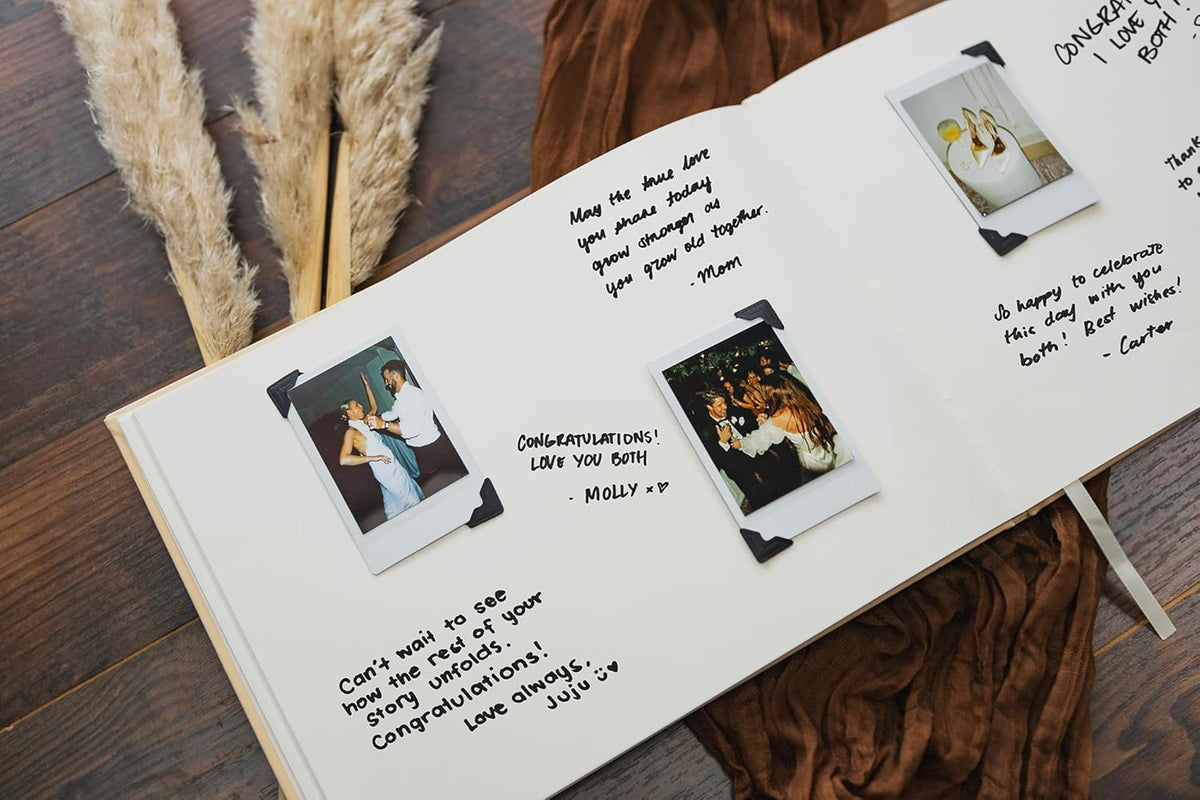 May the true love
you share today
grow stronger as
you grow old together.
- Mom
CONGRATULATIONS!
LOVE YOU BOTH
- MOLLY x♡
Can't wait to see
how the rest of your
story unfolds.
Congratulations!
Love always,
Juju ♥
I LOVE
BOTH!
Thank
to
So happy to celebrate
this day with you
both! Best wishes!
- Carter